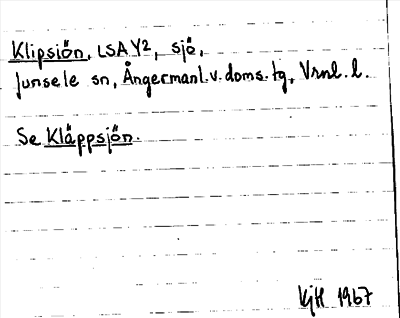 Klipsjön, LSA Y2, sjö,
Junsele sn, Ångermanl.v.doms.tg, Vrnl. l.
Se Kläppsjön.
KjH 1967